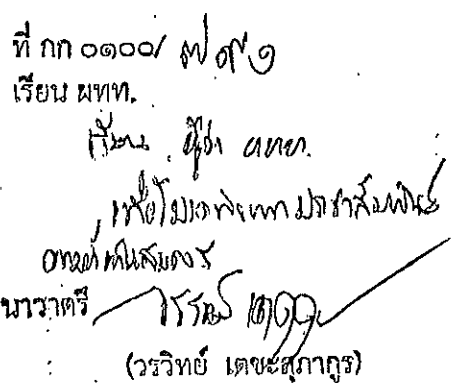 ที่ กก ๐๑๐๐/ ๗๙๑
เรียน ผทท.
เรียน ผู้ว่า ททท.
เพื่อโปรดพิจารณาประชาสัมพันธ์
ตามที่เห็นสมควร
นาวาตรี
(วรวิทย์ เตชะสุภากูร)